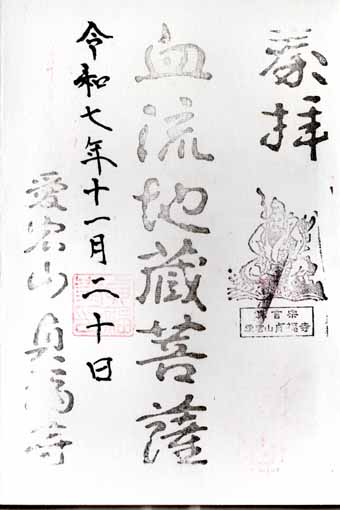 奉拝
真言宗
愛宕山貞福寺
血流地蔵菩薩
令和七年十一月二十日
愛宕山 貞福寺